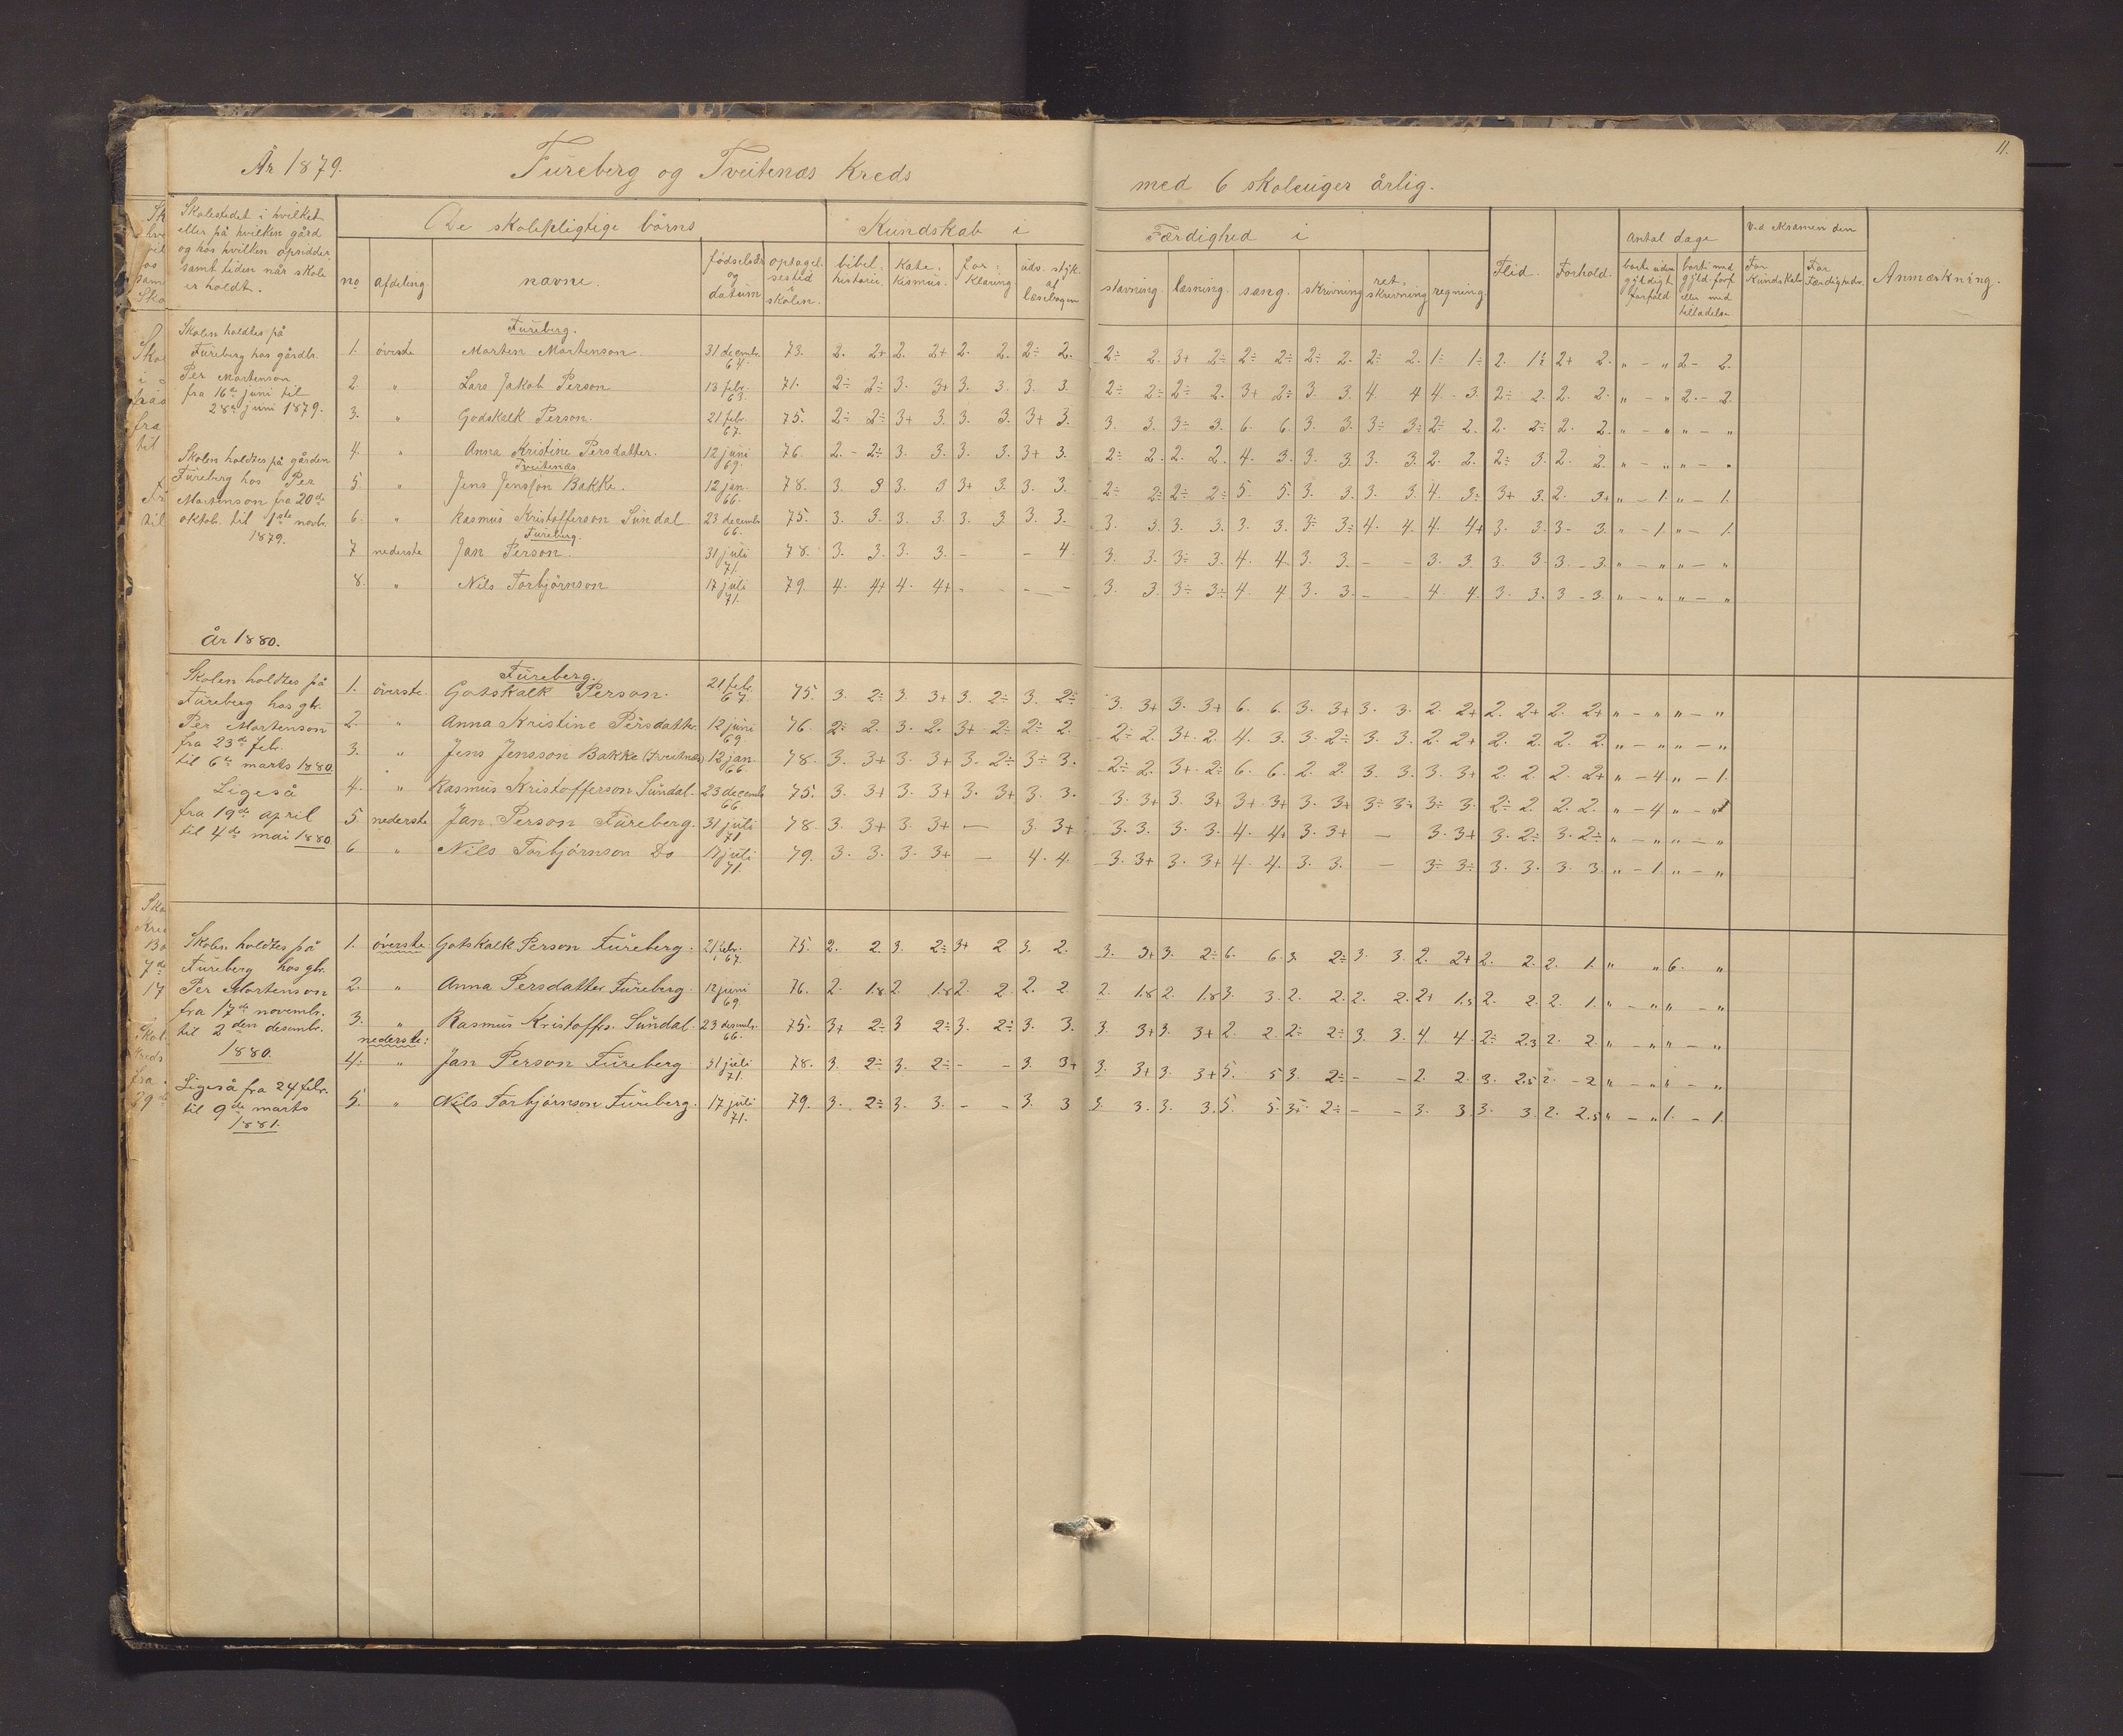 År 1879. Fureberg og Tveitenæs Kreds med 6 skoleuger årlig. 11.
Skolestedet i hvilket eller på hvilken gård og hos hvilken opsidder samt tiden når skole er holdt.
De skolepligtige börns
Kundskab i
Færdighed i
no. afdeling. navne. fødselsår og datum optagelsestid i skolen. bibelhistorie. Katekismus. Forklaring udv. styk. af læsebogen
stavning. læsning. sang. skrivning retskrivning regning. Flid. Forhold. Antal dage borte uden gyldigt forfald borte med gyld. forf. eller med tilladelse Ved eksamen den For Kundskab For Færdighed. Anmærkning.
Skolen holdtes på
Fureberg hos gårdbr.
Per Mortenson
fra 16de juni til
28de juni 1879.
Skolen holdtes på gården
Fureberg hos Per
Mortenson fra 20de
oktob. til 1ste novbr.
1879.
Fureberg.
1. överste Morten Mortenson. 31 decembr. 64. 73. 2. 2+ 2. 2+ 2. 2. 2÷ 2. 2÷ 2. 3+ 2÷ 2÷ 2÷ 2÷ 2. 2÷ 2. 1÷ 1÷ 2. 1÷ 2+ 2. " - " 2 - 2.
2. " Lars Jakob Person 13 febr. 63. 71. 2÷ 2÷ 3. 3+ 3. 3. 3. 3. 2÷ 2÷ 2÷ 2. 3+ 2÷ 3. 3. 4 4 4. 3. 2÷ 2. 2. 2. " - " 2. - 2.
3. " Godskalk Person. 21 febr. 67. 75. 2÷ 2÷ 3+ 3. 3. 3. 3+ 3. 3. 3. 3÷ 3. 6. 6. 3. 3. 3÷ 3÷ 2÷ 2. 2. 2÷ 2. 2. " - " " - "
4. " Anna Kristine Persdatter. 12 juni 69. 76. 2. - 2÷ 3. 3. 3. 3. 3+ 3. 2÷ 2. 2. 2. 4. 3. 3. 3. 3. 3. 2. 2. 2÷ 3. 2. 2. " - " " - "
Tveitenæs
5. " Jens Jensson Bakke. 12 jan. 66. 78. 3. 3 3. 3 3+ 3. 3. 3. 2÷ 2÷ 2÷ 2÷ 5. 5. 3. 3. 3. 3. 4. 3÷ 3+ 3. 2. 3+ " - 1. " - 1.
6. " Rasmus Kristofferson Sundal 23 decembr. 66. 75. 3. 3. 3. 3. 3. 3. 3. 3. 3. 3. 3. 3. 3. 3. 3÷ 3÷ 4. 4. 4. 4+ 3. 3. 3- 3. " - 1. " - 1.
Fureberg.
7 nederste Jan Person. 31 juli 71. 78. 3. 3. 3. 3. - - 4. 3. 3. 3÷ 3. 4. 4. 3. 3. - - 3. 3. 3. 3. 3. - 3. " - " " - "
8. " Nils Torbjörnson 17 juli 71. 79. 4. 4+ 4. 4+ - - - - 3. 3. 3÷ 3÷ 4. 4 3. 3. - 4. 4. 3. 3. 3 - 3. " - " " - "
År 1880.
Skolen holdtes på
Fureberg hos gbr.
Per Mortenson
fra 23de feb.
til 6te marts 1880.
Ligeså
fra 19de april
til 4de mai 1880.
Fureberg.
1. överste. Gotskalk Person. 21 feb. 67. 75. 3. 2÷ 3. 3+ 3. 2÷ 3. 2÷ 3. 3+ 3. 3+ 6. 6. 3. 3+ 3. 3. 2. 2+ 2. 2+ 2. 2+ " - " " - "
2. " Anna Kristine Persdatter 12 juni 69 76. 2÷ 2. 3. 2. 3+ 2÷ 2÷ 2. 2÷ 2. 3+ 2. 4. 3. 3. 2÷ 3. 3. 2. 2+ 2. 2. 2. 2. " - " " - "
3. " Jens Jensson Bakke (tveitnæs) 12 jan. 66 78. 3. 3+ 3. 3+ 3. 2÷ 3÷ 3. 2÷ 2. 3+ 2÷ 6. 6. 2. 2. 3. 3. 3. 3+ 2. 2. 2. 2+ " - 4. " - 1.
4. " Rasmus Kristofferson Sundal. 23 decemb. 66 75. 3. 3+ 3. 3+ 3. 3+ 3. 3. 3. 3+ 3. 3+ 3+ 3+ 3. 3+ 3÷ 3÷ 3÷ 3. 2÷ 2. 2. 2. " - 4 " -
5. nederste Jan Person Fureberg. 31 juli 71 78. 3. 3+ 3. 3+ — 3. 3+ 3. 3. 3. 3. 4. 4+ 3. 3+ — 3. 3+ 3. 2÷ 3. 2÷ " - " " - "
6 " Nils Torbjörnson Do 17 juli 71. 79. 3. 3. 3. 3+ — 4. 4. 3. 3+ 3. 3+ 4. 4. 3. 3. — 3÷ 3÷ 3. 3. 3. 3. " - 1. " - "
Skolen holdtes på
Fureberg hos gbr.
Per Mortenson
fra 17de novembr.
til 2den desembr.
1880.
Ligeså fra 24 febr.
til 9de marts
1881.
1. överste Gotskalk Person Fureberg. 21 febr. 67. 75. 2. 2. 3. 2÷ 3+ 2 3. 2. 3. 3+ 3. 2÷ 6. 6 3. 2÷ 3. 3. 2. 2+ 2. 2. 2. 1. " " 6. "
2. " Anna Persdatter Fureberg 12 juni 69 76. 2. 1.8 2. 1.8 2. 2. 2. 2. 2. 1.8 2. 1.8 3. 3. 2. 2. 2. 2. 2+ 1.5 2. 2. 2. 1. " - " " - "
3. " Rasmus Kristoffs. Sundal. 23 desembr. 66. 75. 3+ 2÷ 3 2÷ 3. 2÷ 3. 3. 3. 3+ 3. 3+ 2. 2. 2÷ 2÷ 3. 3. 4. 4. 2÷ 2.3 2. 2. " - " " - "
nederste:
4. " Jan Person Fureberg 31 juli 71. 78. 3. 2÷ 3. 2÷ - - 3. 3+ 3. 3+ 3. 3+ 5. 5 3. 2÷ - - 2. 2. 3. 2.5 2. - 2 " - " " - "
5. " Nils Torbjörnson Fureberg. 17 juli 71. 79. 3. 2÷ 3. 3. - - 3. 3 3. 3. 3. 3. 5. 5. 3÷ 2÷ - - 3. 3. 3. 3. 2. 2.5 " - " 1. - 1.